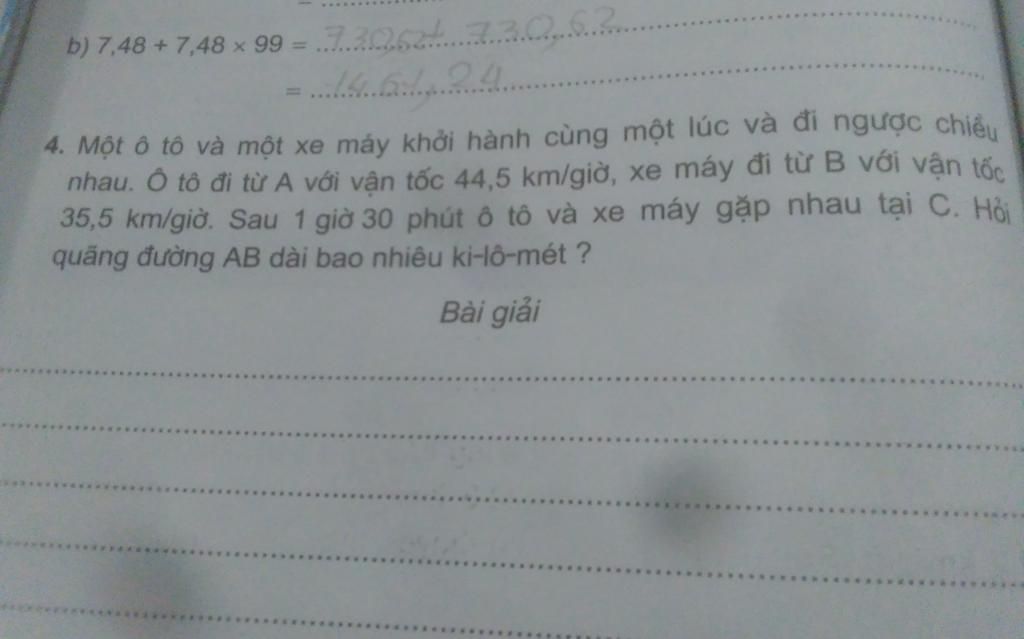 b) 7,48 + 7,48 × 99 = 730,62 + 730,62
= 1461,24
4. Một ô tô và một xe máy khởi hành cùng một lúc và đi ngược chiều
nhau. Ô tô đi từ A với vận tốc 44,5 km/giờ, xe máy đi từ B với vận tốc
35,5 km/giờ. Sau 1 giờ 30 phút ô tô và xe máy gặp nhau tại C. Hỏi
quãng đường AB dài bao nhiêu ki-lô-mét ?
Bài giải